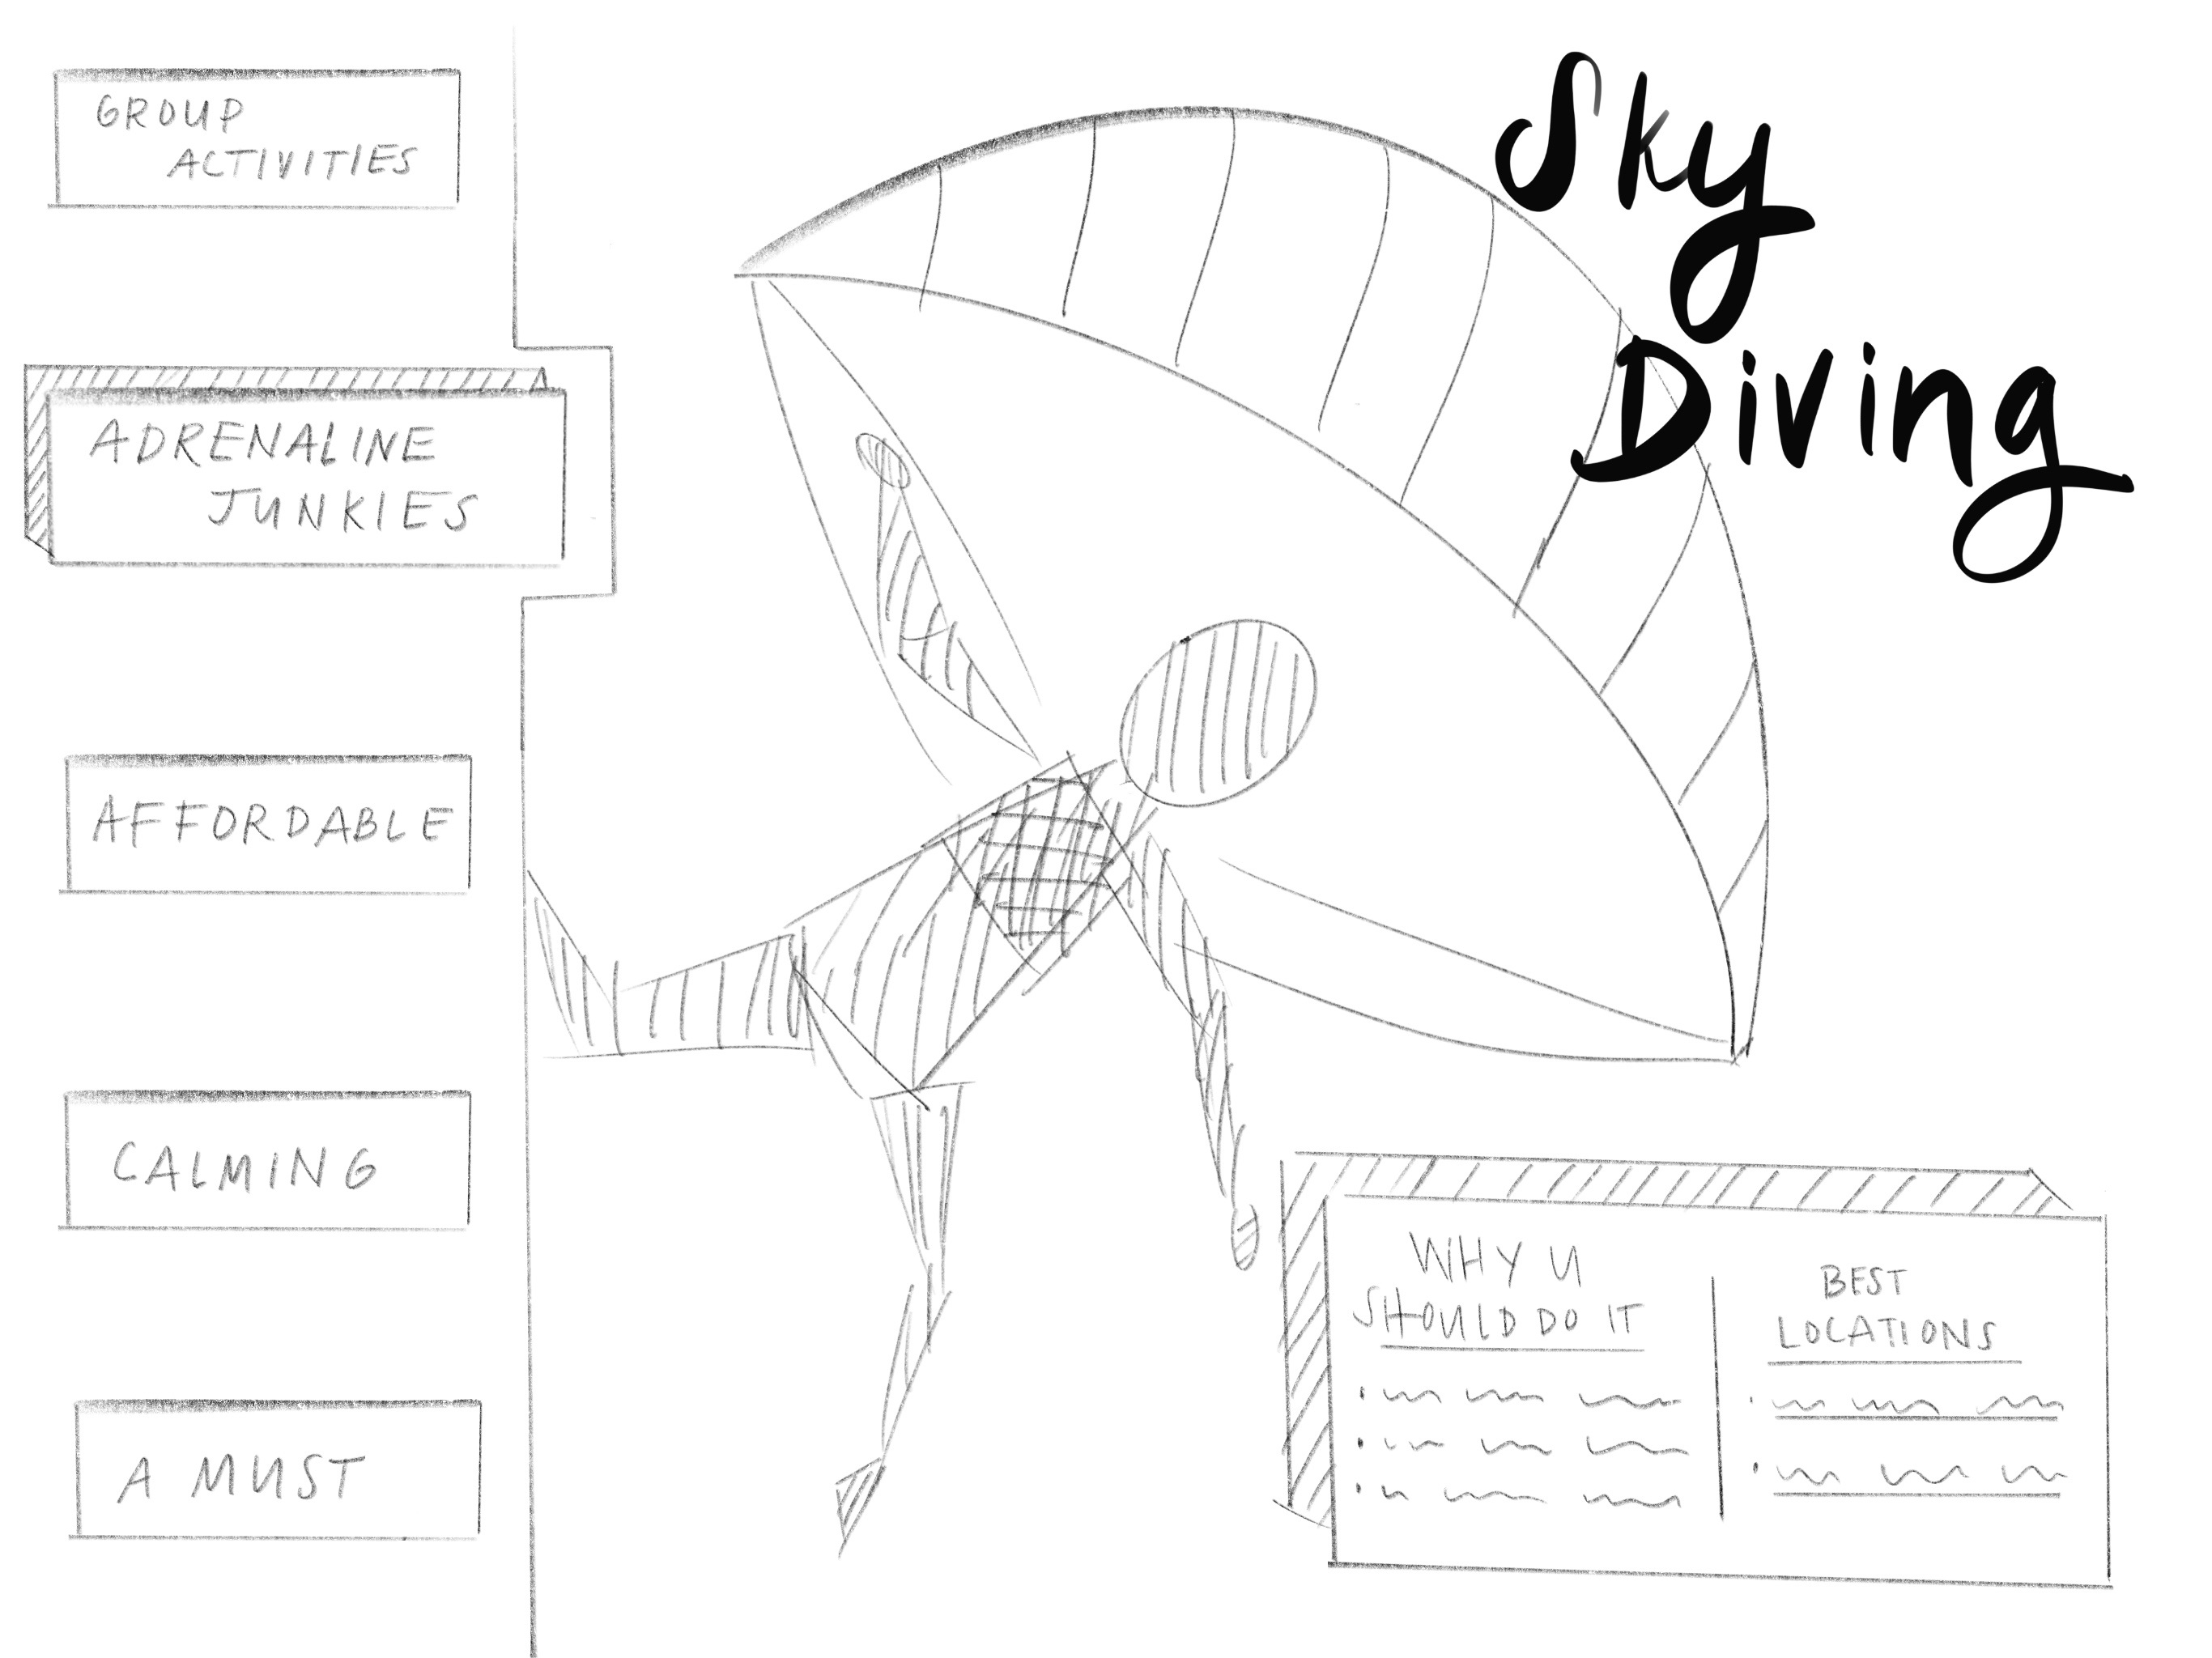 GROUP
ACTIVITIES
ADRENALINE
JUNKIES
AFFORDABLE
CALMING
A MUST
Sky
Diving
WHY U
SHOULD DO IT
BEST
LOCATIONS